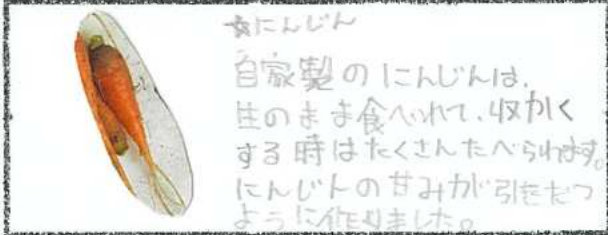 ☆にんじん
自家製のにんじんは、
生のまま食べれて、収かく
する時はたくさんたべられます。
にんじんの甘みが引きだつ
ように作りました。